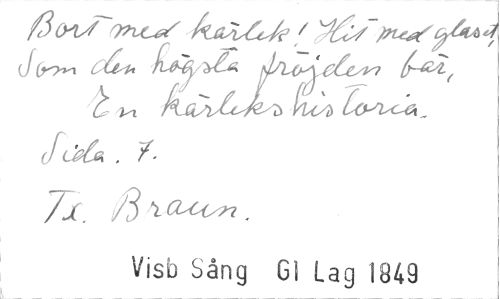 Bort med kärlek! Hit med glaset,
Som den högsta fröjden bär,
En kärlekshistoria.
Sida. 7.
Tx. Braun.
Visb Sång Gl Lag 1849